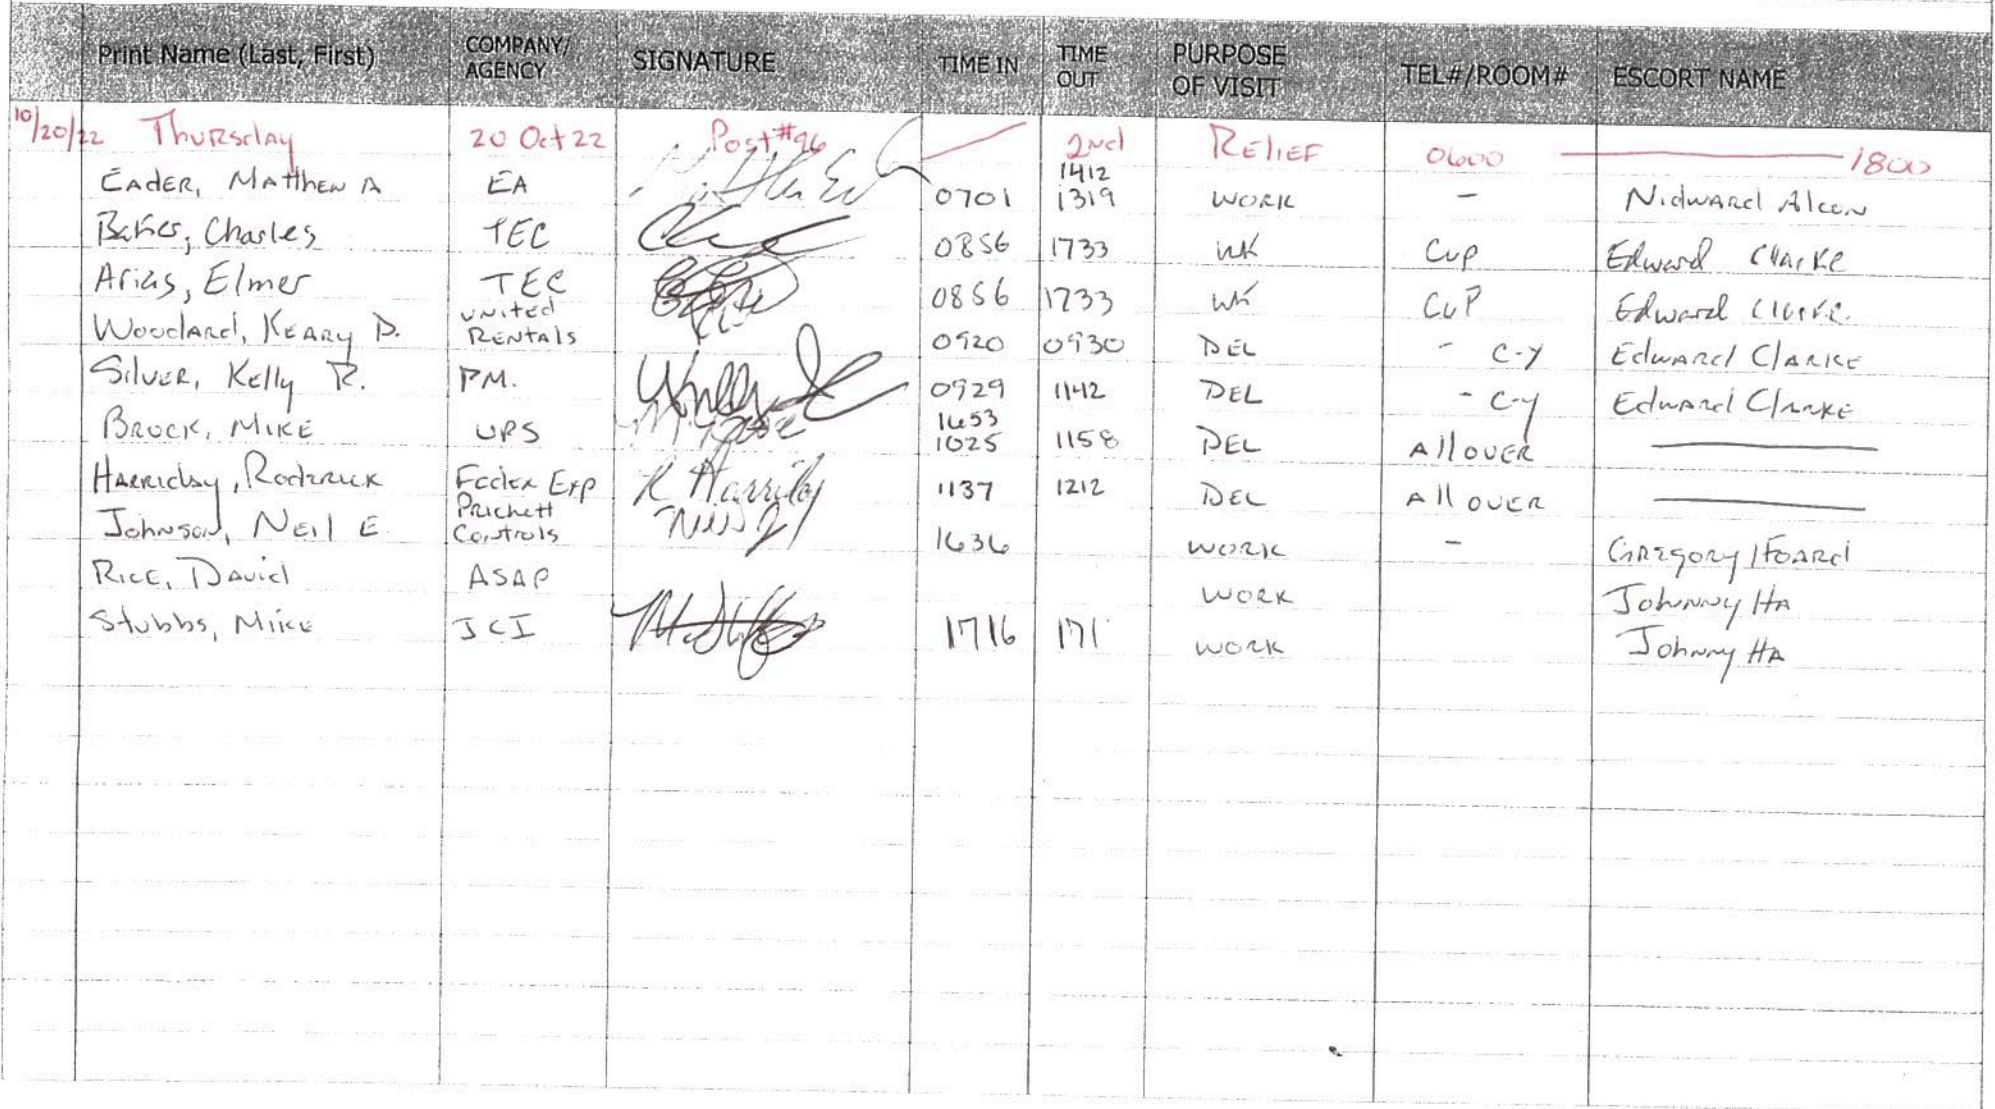 Print Name (Last, First) COMPANY/ AGENCY SIGNATURE TIME IN TIME OUT PURPOSE OF VISIT TEL#/ROOM# ESCORT NAME
10/20/22 Thursday 20 Oct 22 Post #96 2nd RELIEF 0600 1800
EADER, Matthew A EA 0701 1412 1319 WORK - Nidward
Charles TEC 0856 1733 WK CUP Edward Clarke
Arias, Elmer TEC 0856 1733 WK CUP Edward Clarke
Woodard, KEARY D. UNITED RENTALS 0920 0930 DEL - C-Y EDWARD CLARKE
SILVER, Kelly R. PM. 0929 1142 DEL - C-Y Edward CLARKE
BROCK, MIKE UPS 1653 1025 1158 DEL All OVER
Fedex Exp R 1137 1212 DEL All OVER
Johnson, NEIL E. Prichett Controls 1636 WORK - GREGORY
RICE, David ASAP WORK Johnny HA
Stubbs, Mike JCI 1716 171 WORK Johnny HA